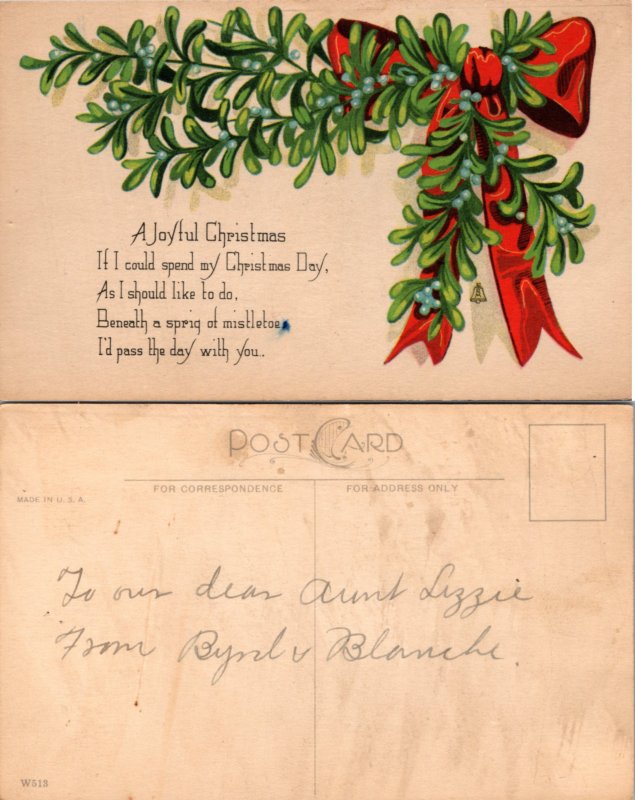 A Joyful Christmas
If I could spend my Christmas Day,
As I should like to do,
Beneath a sprig of mistletoe
I'd pass the day with you..
POST CARD
FOR CORRESPONDENCE FOR ADDRESS ONLY
MADE IN U. S. A.
To our dear Aunt Lizzie
From Byrd & Blanche.
W513